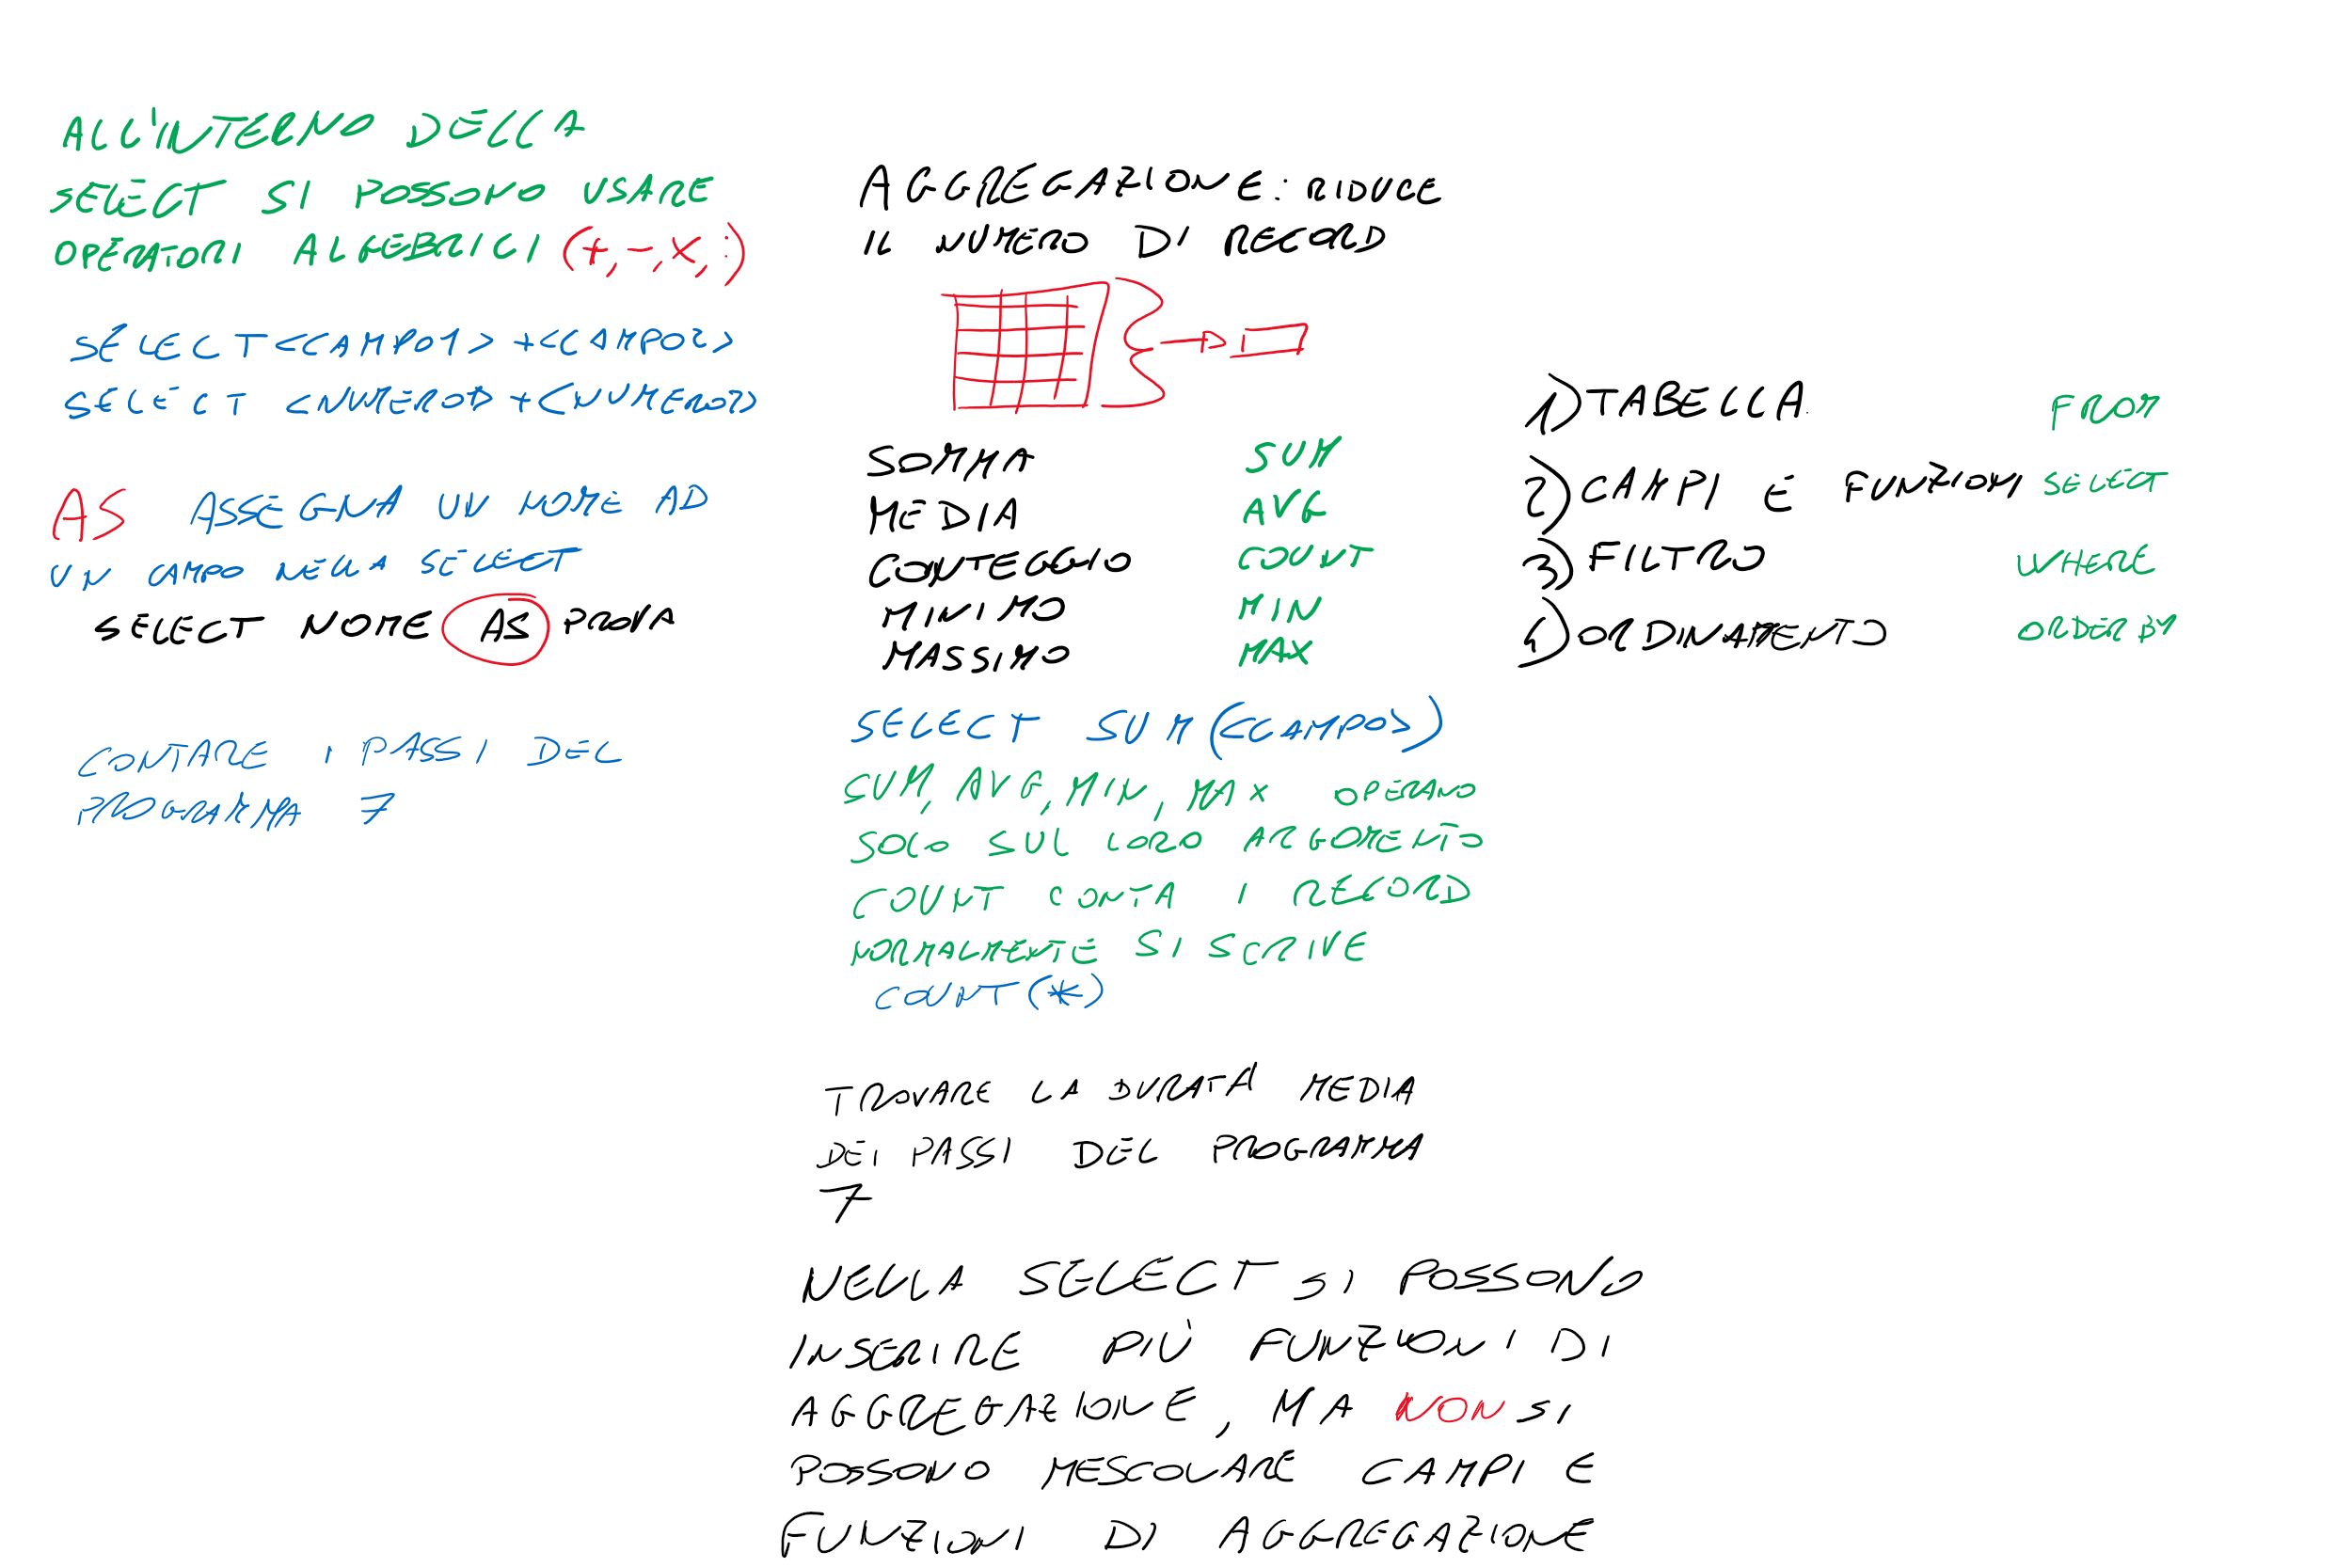 ALL'INTERNO DELLA
SELECT SI POSSONO USARE
OPERATORI ALGEBRICI (+,-,×,:)
SELECT <CAMPO1> + <CAMPO2>
SELECT <NUMERO1> + <NUMERO2>
AS ASSEGNA UN NOME AD
UN CAMPO NELLA SELECT
SELECT NOME AS PROVA
CONTARE I PASSI DEL
PROGRAMMA 7
AGGREGAZIONE: RIDUCE
IL NUMERO DI RECORD
SOMMA SUM
MEDIA AVG
CONTEGGIO COUNT
MINIMO MIN
MASSIMO MAX
SELECT SUM(<CAMPO>)
SUM, AVG, MIN, MAX OPERANO
SOLO SUL LORO ARGOMENTO
COUNT CONTA I RECORD
NORMALMENTE SI SCRIVE
COUNT(*)
TROVARE LA DURATA MEDIA
DEI PASSI DEL PROGRAMMA
7
NELLA SELECT SI POSSONO
INSERIRE PIÙ FUNZIONI DI
AGGREGAZIONE, MA NON SI
POSSONO MESCOLARE CAMPI E
FUNZIONI DI AGGREGAZIONE
1) TABELLA FROM
2) CAMPI E FUNZIONI SELECT
3) FILTRO WHERE
4) ORDINAMENTO ORDER BY